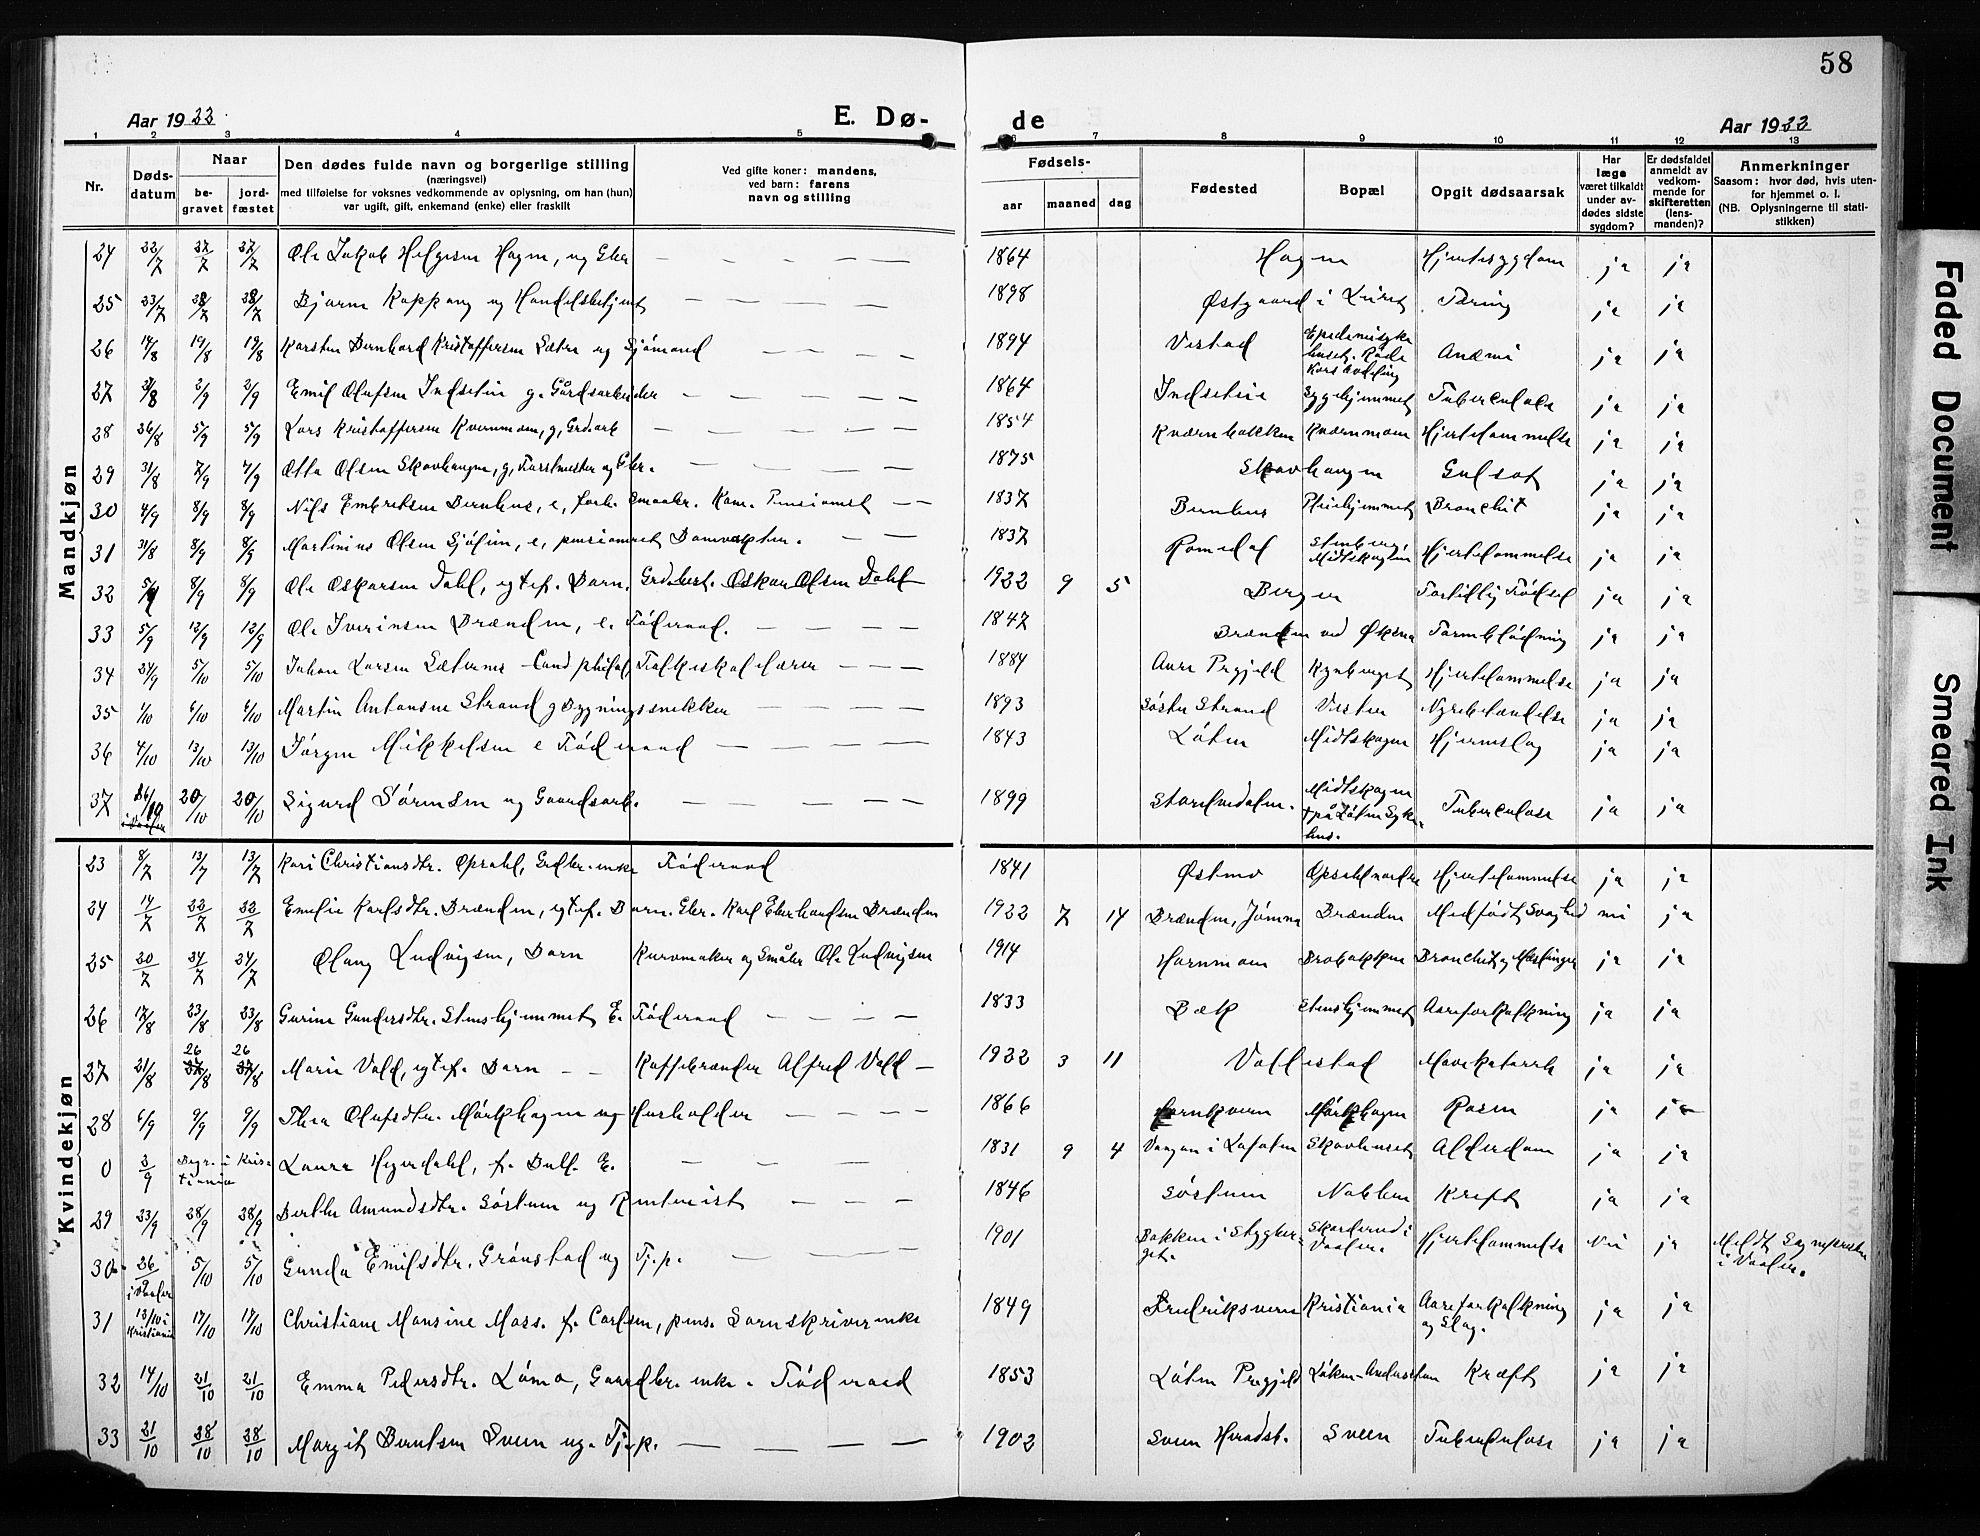 58
Aar 1922.
E. Dø-
de
Aar 1922
1 2 3 4 5 6 7 8 9 10 11 12 13
Nr.
Døds-
datum
Naar
be-
gravet
jord-
fæstet
Den dødes fulde navn og borgerlige stilling
(næringsvei)
med tilføielse for voksnes vedkommende av oplysning, om han (hun)
var ugift, gift, enkemand (enke) eller fraskilt
Ved gifte koner: mandens,
ved barn: farens
navn og stilling
Fødsels-
aar
maaned
dag
Fødested
Bopæl
Opgit dødsaarsak
Har
læge
været tilkaldt
under av-
dødes sidste
sygdom?
Er dødsfaldet
anmeldt av
vedkom-
mende for
skifteretten
(lens-
manden)?
Anmerkninger
Saasom: hvor død, hvis uten-
for hjemmet o. l.
(NB. Oplysningerne til stati-
stikken)
Mandkjøn
24 22/7 27/7 27/7 Ole Jakob Helgesen Hagen, ug Gbr — — — — 1864 Hagen Hjertesygdom ja ja
25 23/7 28/7 28/7 Bjarne Koppang ug Handelsbetjent — — — — 1898 Østgaard i Luret Tæring ja ja
26 14/8 19/8 19/8 Karsten Bernhard Kristoffersen Sætre ug Sjømand — — — — 1894 Vestad Epidemisyke
huset. Røde
Kors avdeling Anæmi ja ja
27 21/8 2/9 2/9 Emil Olufsen Indsetvie g. Gårdsarbeider — — — — 1864 Indsetvie Sygehjemmet Tuberculose ja ja
28 26/8 5/9 5/9 Lars Kristoffersen Kvernmoen, g, Grdarb — — — — 1854 Kværnbakken Kværnmoen Hjertelammelse ja ja
29 31/8 7/9 7/9 Otto Olsen Skovhaugen, g, Forstmester og Gbr. — — — — 1875 Skovhaugen Gulsot ja ja
30 4/9 8/9 8/9 Nils Embretsen Bernhus, e, forh. Smaabr. Kom. Pensionist — — 1837 Bernhus Pleiehjemmet Bronchit ja ja
31 31/8 8/9 8/9 Martinius Olsen Sjølien, e, pensioneret Banevogter. — — 1837 Romedal Stenberg,
Midtskogen Hjertelammelse ja ja
32 5/9 8/9 8/9 Ole Oskarsen Dahl, egtef. Barn. Grdbest. Oskar Olsen Dahl 1922 9 5 Berger Fortidlig Fødsel ja ja
33 5/9 12/9 12/9 Ole Iverinsen Brænden, e. Føderaad. — — — — 1847 Brænden ved Øksna Tarmblødning ja ja
34 24/9 5/10 5/10 Johan Larsen Sæternes Cand philol, Folkeskolelærer — — — 1884 Aure Prgjeld Rynberget Hjertelammelse ja ja
35 1/10 6/10 6/10 Martin Antonsen Strand g Bygningssnekker — — — — 1893 Søstu Strand Vestre Nyrebetændelse ja ja
36 4/10 13/10 13/10 Jørgen Mikkelsen e Føderaad — — — — 1843 Løten Midtskogen Hjerneslag ja ja
37 16/10 20/10 20/10 Sigurd Sørensen ug Gaardsarb. — — — — 1899 Storelvdalen. Midtskogen
+ på Løten Syke-
hus. Tuberculose ja ja
Kvindekjøn
23 8/7 13/7 13/7 Kari Christiansdtr. Opsahl, Grdbr. enke Føderaad 1841 Østmo Opsahl nordre Hjertelammelse ja ja
24 14/7 22/7 22/7 Emilie Karlsdtr. Brænden, egtef. Barn. Gbr. Karl Eberhardsen Brænden 1922 7 14 Brænden, Jømna Brænden Medfødt Svaghed nei ja
25 20/7 24/7 24/7 Olaug Ludvigsen, Barn Kurvmaker og Småbr Ole Ludvigsen 1914 Hornmoen Brobakken Bronchit og Meslinger ja ja
26 17/8 23/8 23/8 Gurine Gundersdtr. Stenshjemmet E. Føderaad — — — — 1833 Bæk Stenshjemmet Aareforkalkning ja ja
27 21/8 26/8 26/8 Marie Vold, egtef. Barn — — Kaffebrænder Alfred Vold — 1922 3 11 Vollestad Mavekatarrh ja ja
28 6/9 9/9 9/9 Thea Olufsdtr. Mørkhagen ug Husholder — — — — 1866 Hornkvern Mørkhagen Rosen ja ja
0 3/9 Begr. i Kris-
tiania Laura Heyerdahl, f. Bull. E. — — — — 1831 9 4 Vaagan i Lofoten Skovhuset Alderdom ja ja
29 23/9 28/9 28/9 Berthe Amundsdtr. Søstuen ug Rentenist — — — 1846 Søstuen Nabben Kreft ja ja
30 26/9
i Vaaler 5/10 5/10 Gunda Emilsdtr. Grønstad ug Tj.p. — — — 1901 Bakken i Stygber-
get. Skarderud i
Vaaler. Hjertelammelse Nei ja Meldt Sogneprest
i Vaaler.
31 13/10 i
Kristiania 17/10 17/10 Christiane Mansine Moss. f. Carlsen, pens. Sornskriverenke 1849 Fredriksvern Kristiania Aareforkalkning
og Slag. ja ja
32 14/10 21/10 21/10 Emma Pedersdtr. Løma, Gaardbr. enke. Føderaad 1853 Løten Prgjeld Løken-Anderstuen Kræft ja ja
33 21/10 28/10 28/10 Margit Berntsen Sveen ug. Tj.p. — — — — 1902 Sveen Heradsb. Sveen Tuberculose ja ja
Faded Document
Smeared Ink